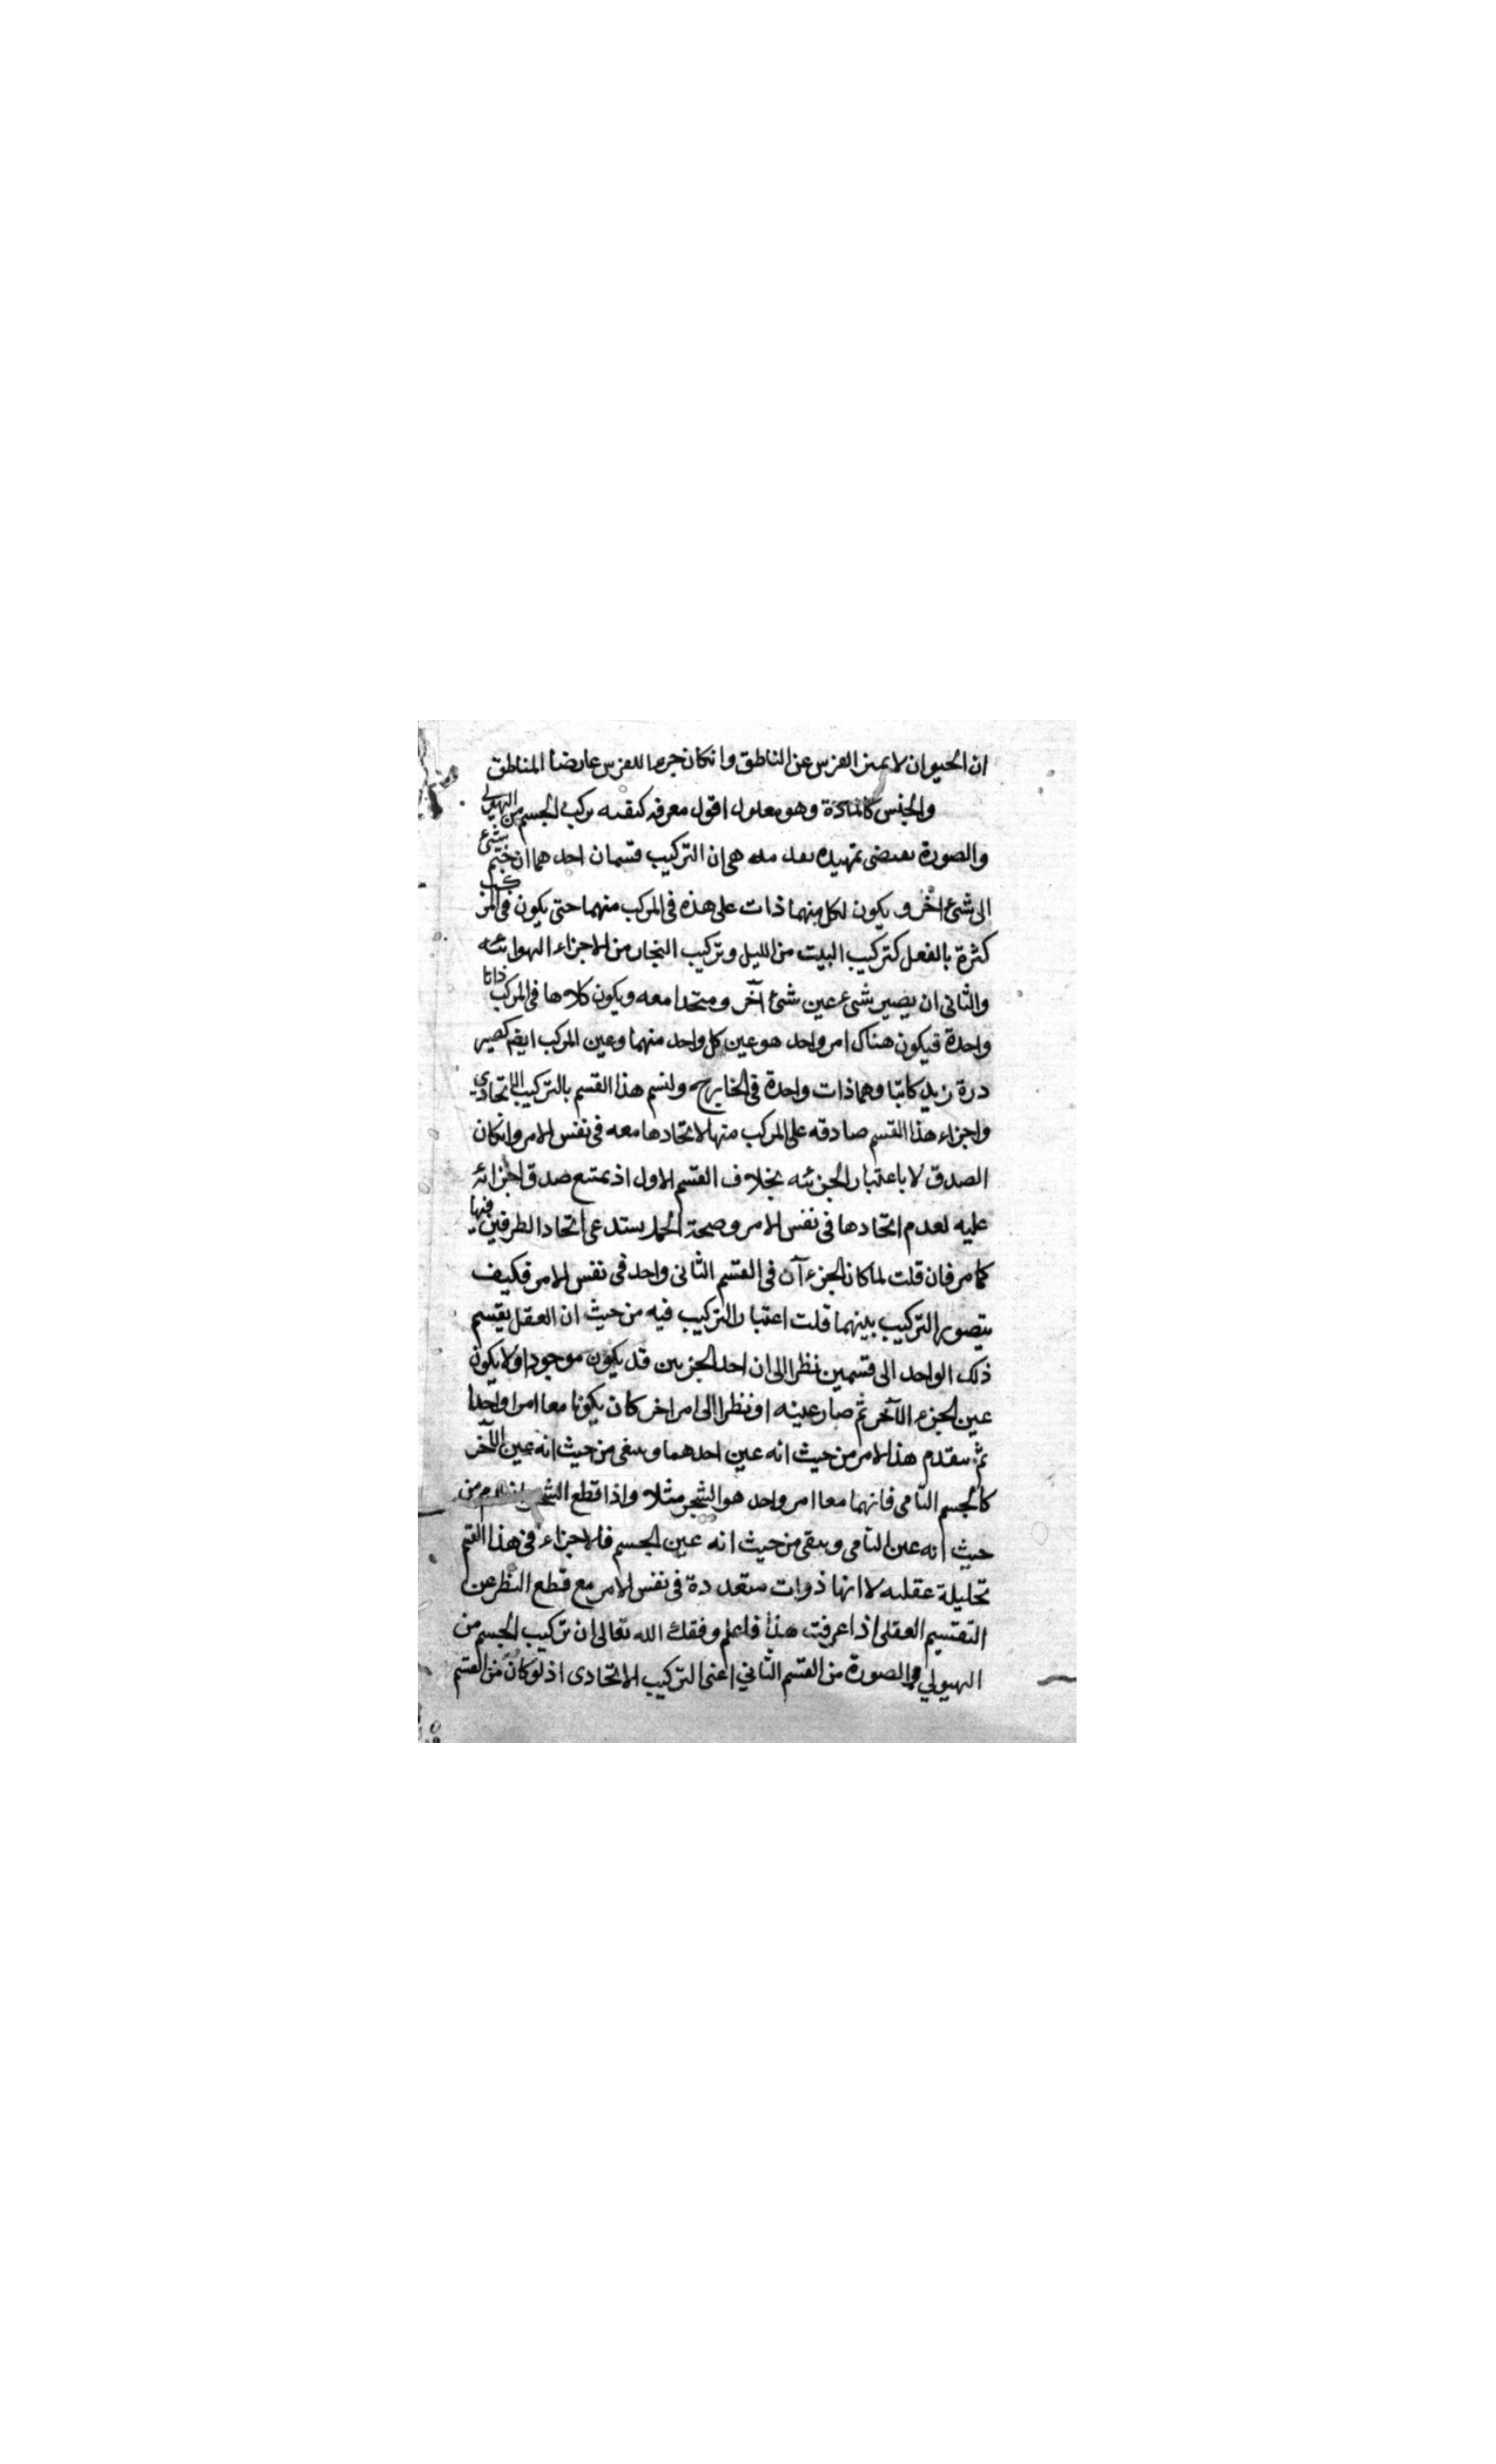 ان الحيوان لا يميز الفرس عن الناطق وان كان جزءا للفرس عارضا للناطق
والجنس كالمادة وهو معلول اقول معرفة كيفية تركيب الجسم من الهيولى
والصورة يقتضى تمهيد مقدمة هى ان التركيب قسمان احدهما ان ينضم شئ
الى شئ اخر و يكون لكل منهما ذات على هذه فى المركب منهما حتى يكون فى المركب
كثرة بالفعل كتركيب البيت من اللبن وتركيب البخار من الاجزاء الهوائية
والثانى ان يصير شىء عين شئ آخر ومتحدا معه ويكون كلاهما فى المركب ذاتا
واحدة فيكون هناك امر واحد هو عين كل واحد منهما وعين المركب ايضا كصير
درة زيد كاتبا وهما ذات واحدة فى الخارج ولنسم هذا القسم بالتركيب الاتحادي
واجزاء هذا القسم صادقه على المركب منها لاتحادها معه فى نفس الامر وان كان
الصدق لا باعتبار الجزئيه بخلاف القسم الاول اذ يمتنع صدق اجزائه
عليه لعدم اتحادها فى نفس الامر وصحة الحمل يستدعى اتحاد الطرفين فيها
كما مر فان قلت لما كان الجزء آن فى القسم الثانى واحد فى نفس الامر فكيف
يتصور التركيب بينهما قلت اعتبار التركيب فيه من حيث ان العقل يقسم
ذلك الواحد الى قسمين نظرا الى ان احد الجزئين قد يكون موجودا ولا يكون
عين الجزء الآخر ثم صار عينه او نظرا الى امر اخر كان يكونا معا امرا واحدا
ثم ينعدم هذا الامر من حيث انه عين احدهما ويبقى من حيث انه عين الآخر
كالجسم النامى فانهما معا امر واحد هو الشجر مثلا واذا قطع الشجر ينعدم من
حيث انه عين النامى ويبقى من حيث انه عين الجسم فالاجزاء فى هذا القسم
تحليلة عقليه لا انها ذوات متعددة فى نفس الامر مع قطع النظر عن
التقسيم العقلى اذا عرفت هذا فاعلم وفقك الله تعالى ان تركيب الجسم من
الهيولي والصورة من القسم الثاني اعنى التركيب الاتحادى اذ لو كان من القسم